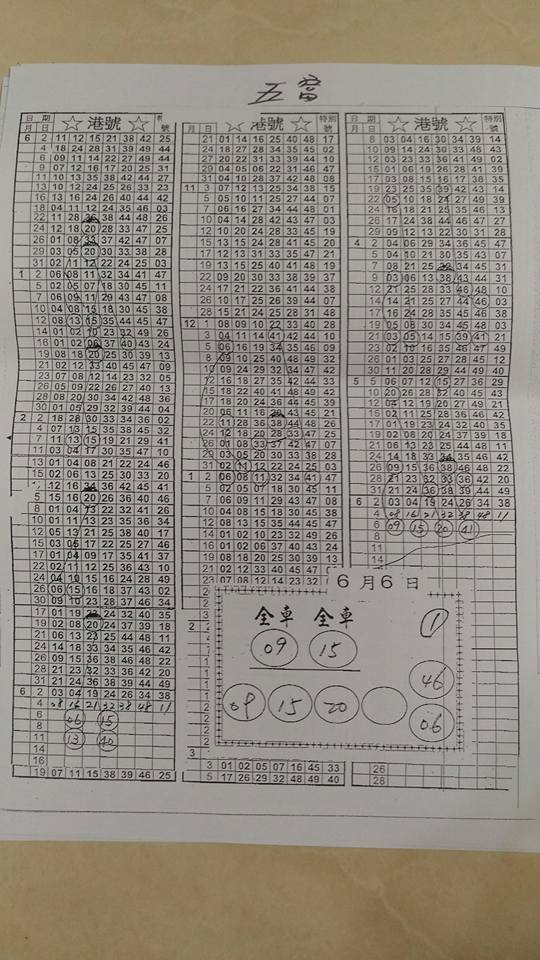 五窩
日 期 ☆ 港號 ☆
月 日
6 2 11 12 15 21 38 42 25
4 18 24 28 31 39 49 44
6 09 11 14 22 27 49 44
9 07 12 16 17 20 25 31
11 10 13 35 38 42 44 27
13 10 12 24 25 26 33 23
16 13 16 24 26 40 44 42
18 04 11 12 24 35 46 03
22 11 28 36 38 44 48 26
24 12 18 20 28 33 47 25
26 01 08 33 37 42 47 07
29 03 05 20 30 33 38 28
31 02 11 12 22 24 25 03
1 2 06 08 11 32 34 41 47
5 02 05 07 18 30 45 11
7 06 09 11 29 43 47 08
10 04 08 15 18 30 45 38
12 08 13 15 35 44 45 47
14 01 02 10 23 32 49 26
16 01 02 06 37 40 43 24
19 08 18 20 25 30 39 13
21 02 12 33 40 45 47 09
23 07 08 12 14 23 32 05
26 05 09 22 26 27 40 13
28 08 20 30 34 42 48 36
30 01 05 29 32 39 44 04
2 2 18 28 30 33 34 36 02
4 07 13 15 38 45 32
7 11 13 15 19 21 29 41
11 03 04 17 30 35 47 10
13 01 04 08 21 22 24 46
15 02 06 13 25 30 33 20
12 16 34 36 42 45 41
5 15 16 20 26 36 40 46
8 01 04 13 32 41 26
10 01 11 13 23 35 36 34
12 05 13 21 25 38 40 17
15 03 06 17 22 25 27 46
17 01 04 09 17 35 41 37
22 02 11 12 25 36 43 10
24 04 10 15 16 24 28 49
26 06 15 16 18 37 43 02
30 09 10 23 28 37 46 34
17 01 19 23 24 32 40 35
19 02 08 20 24 37 39 18
21 06 13 23 25 44 48 11
24 14 18 33 34 35 45 46
26 09 15 36 38 46 48 22
28 21 23 32 33 36 42 20
31 21 24 36 38 39 44 49
6 2 03 04 19 24 26 34 38
4 08 16 21 32 38 48 11
6 06 15
8
11 13 40
14
16
19 07 11 15 38 39 46 25
日 期 ☆ 港號 ☆ 特別號
月 日
21 01 14 16 25 40 48 17
24 18 27 28 34 35 45 02
27 20 22 31 33 39 44 10
29 04 05 06 22 31 46 47
31 04 10 28 37 42 48 08
11 3 07 12 13 25 34 38 15
5 05 10 11 25 27 44 07
7 06 16 27 34 44 48 01
10 04 14 28 42 43 47 03
12 10 20 24 28 33 45 19
15 13 15 24 28 41 45 20
17 12 29 30 33 35 47 21
19 13 15 25 40 41 48 19
22 09 20 30 33 38 39 37
24 17 21 22 36 41 44 38
26 10 17 25 26 39 44 07
28 15 21 24 25 28 31 48
12 1 08 09 10 22 33 40 28
3 04 11 14 41 42 44 10
5 06 16 19 34 35 46 09
8 09 10 25 40 48 49 32
10 09 24 29 32 34 47 42
12 16 18 27 35 42 44 33
15 18 22 40 41 48 49 42
17 18 20 24 36 44 45 39
20 06 11 16 29 43 45 21
22 11 28 36 38 44 48 26
24 12 18 20 28 33 47 25
26 01 08 33 37 42 47 07
29 03 05 20 30 33 38 28
31 02 11 12 22 24 25 03
1 2 06 08 11 32 34 41 47
5 02 05 07 18 30 45 11
7 06 09 11 29 43 47 08
10 04 08 15 18 30 45 38
12 08 13 15 35 44 45 47
14 01 02 10 23 32 49 26
16 01 02 06 37 40 43 24
19 08 18 20 25 30 39 13
21 02 12 33 40 45 47 09
23 07 08 12 14 23 32
3 01 02 05 07 16 45 33
5 17 26 29 32 48 49 40
日 期 ☆ 港號 ☆ 特別號
月 日
8 03 04 16 30 34 39 14
10 09 14 24 30 33 48 43
12 03 23 33 36 41 49 02
15 01 06 19 26 28 41 39
17 03 08 15 16 17 38 35
19 23 25 35 39 42 43 14
22 05 10 18 24 27 49 39
24 16 18 21 25 35 46 13
26 17 24 38 44 45 46 37
29 09 12 13 22 30 31 28
4 2 04 06 29 34 36 45 47
5 04 10 21 30 35 43 07
7 08 21 25 34 45 31
9 03 06 13 38 43 44 31
12 21 25 28 33 46 48 10
14 14 21 25 27 44 46 03
17 16 24 28 35 45 46 38
19 05 08 30 34 45 48 03
21 03 05 14 15 39 41 21
23 02 11 16 35 46 47 49
26 01 03 25 27 28 45 12
30 11 20 28 29 44 49 40
5 5 06 07 12 15 27 36 29
10 20 26 28 32 40 43 45
12 04 12 19 20 27 49 21
15 02 11 25 28 36 46 42
17 01 19 23 24 32 40 35
19 02 08 20 24 37 39 18
21 06 13 23 25 44 48 11
24 14 18 33 34 35 45 46
26 09 15 36 38 46 48 22
28 21 23 32 33 36 42 20
31 21 24 36 38 39 44 49
6 2 03 04 19 24 26 34 38
4 08 16 21 32 38 48 11
6 09 15 20 41
8
11
14
26
28
6月6日
全車 全車 1
09 15
46
09 15 20
06